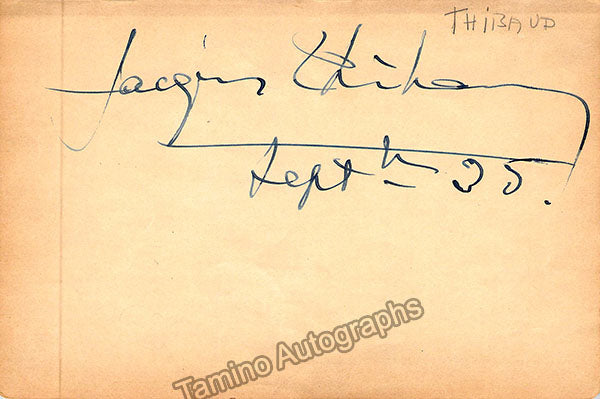 THIBAUD
Jacques Thibaud
Septbre 35.
Tamino Autographs